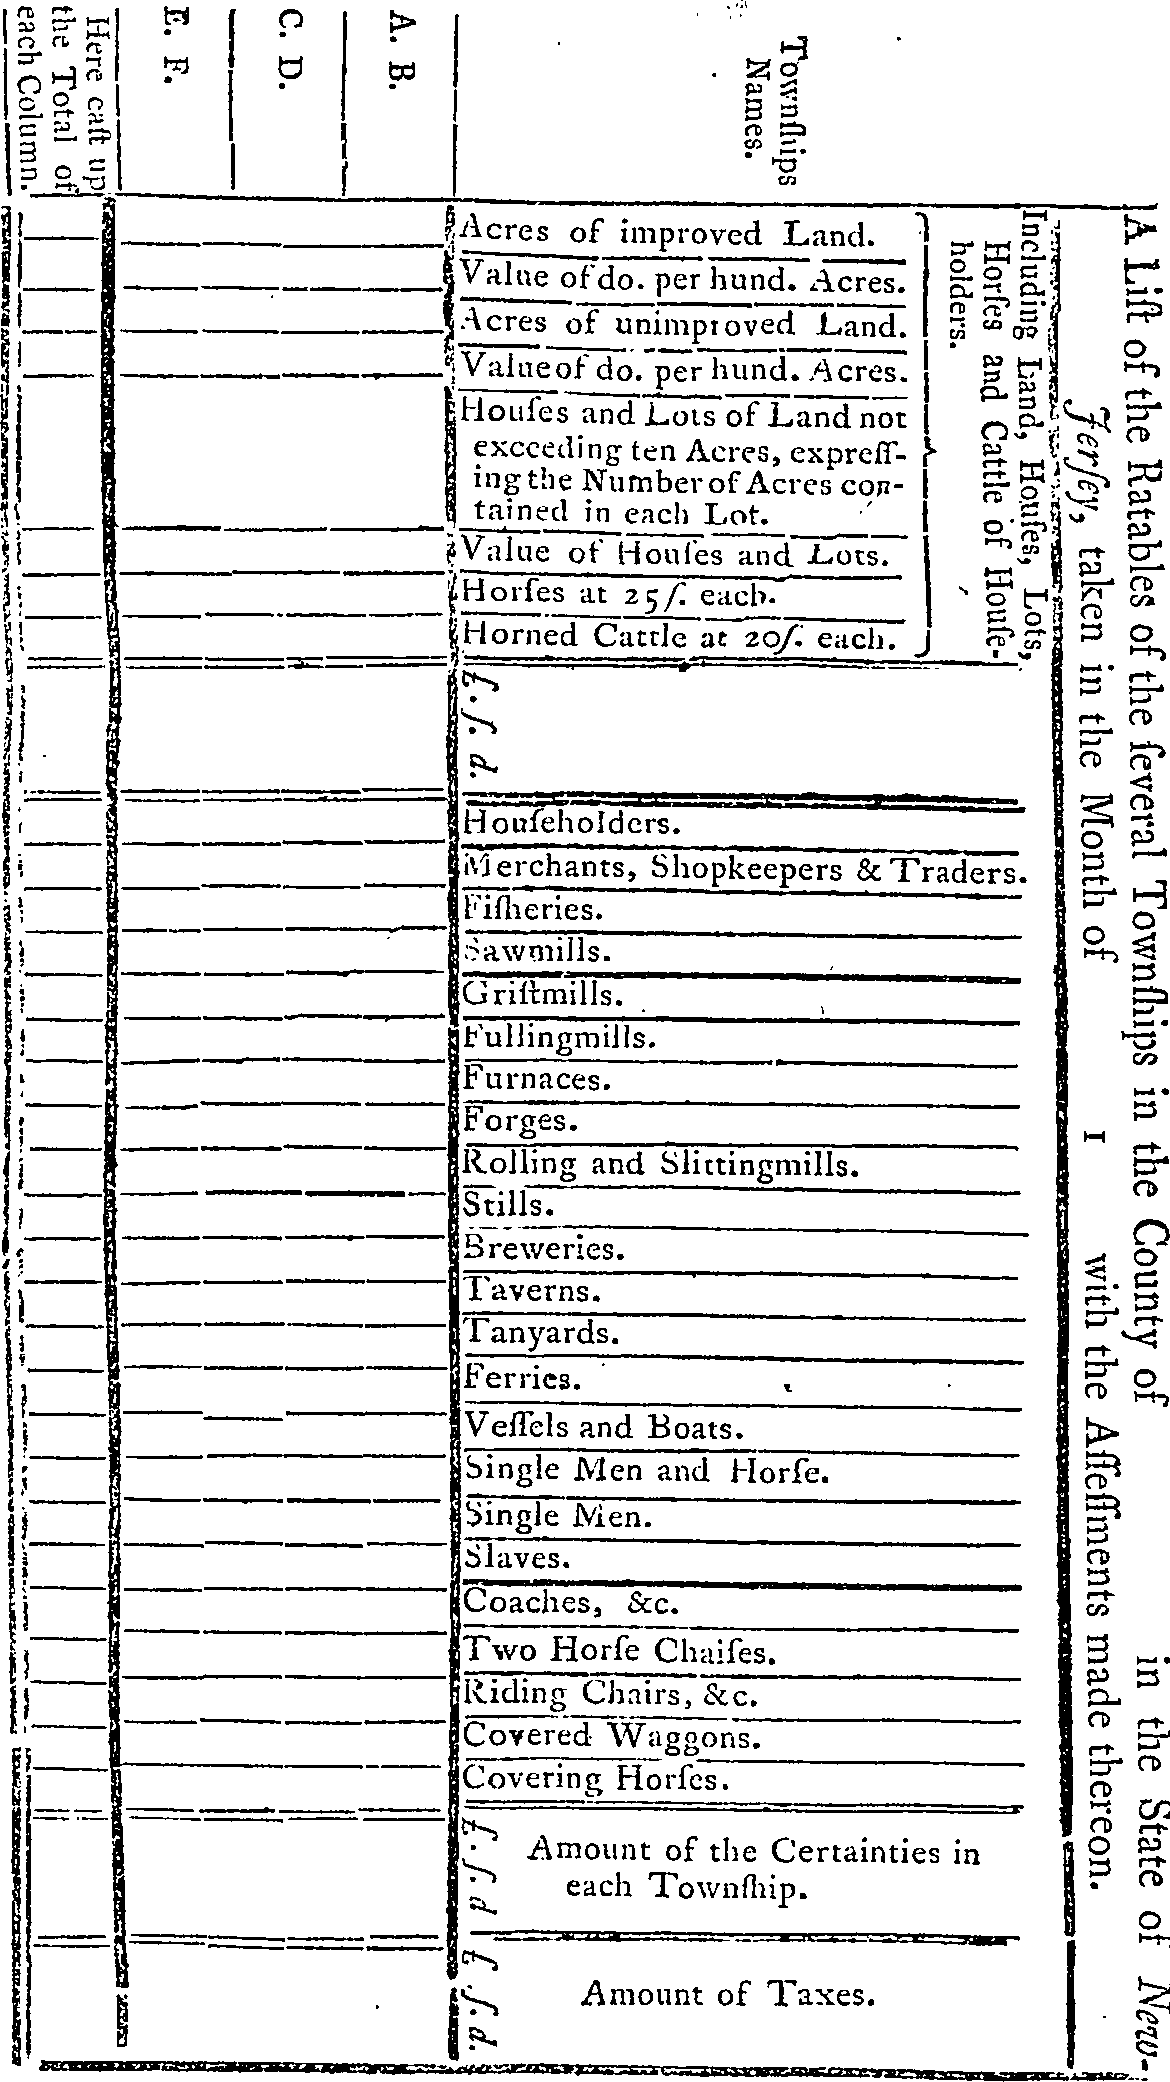 A Liſt of the Ratables of the ſeveral Townſhips in the County of in the State of New-
Jerſey, taken in the Month of 1 with the Aſſeſſments made thereon.
Townſhips
Names.
Including Land, Houſes, Lots,
Horſes and Cattle of Houſe-
holders.
Acres of improved Land.
Value of do. per hund. Acres.
Acres of unimproved Land.
Value of do. per hund. Acres.
Houſes and Lots of Land not
exceeding ten Acres, expreſſ-
ing the Number of Acres con-
tained in each Lot.
Value of Houſes and Lots.
Horſes at 25ſ. each.
Horned Cattle at 20ſ. each.
£. ſ. d.
Houſeholders.
Merchants, Shopkeepers & Traders.
Fiſheries.
Sawmills.
Griſtmills.
Fullingmills.
Furnaces.
Forges.
Rolling and Slittingmills.
Stills.
Breweries.
Taverns.
Tanyards.
Ferries.
Veſſels and Boats.
Single Men and Horſe.
Single Men.
Slaves.
Coaches, &c.
Two Horſe Chaiſes.
Riding Chairs, &c.
Covered Waggons.
Covering Horſes.
Amount of the Certainties in
each Townſhip.
£. ſ. d
Amount of Taxes.
£. ſ. d.
A. B.
C. D.
E. F.
Here caſt up
the Total of
each Column.